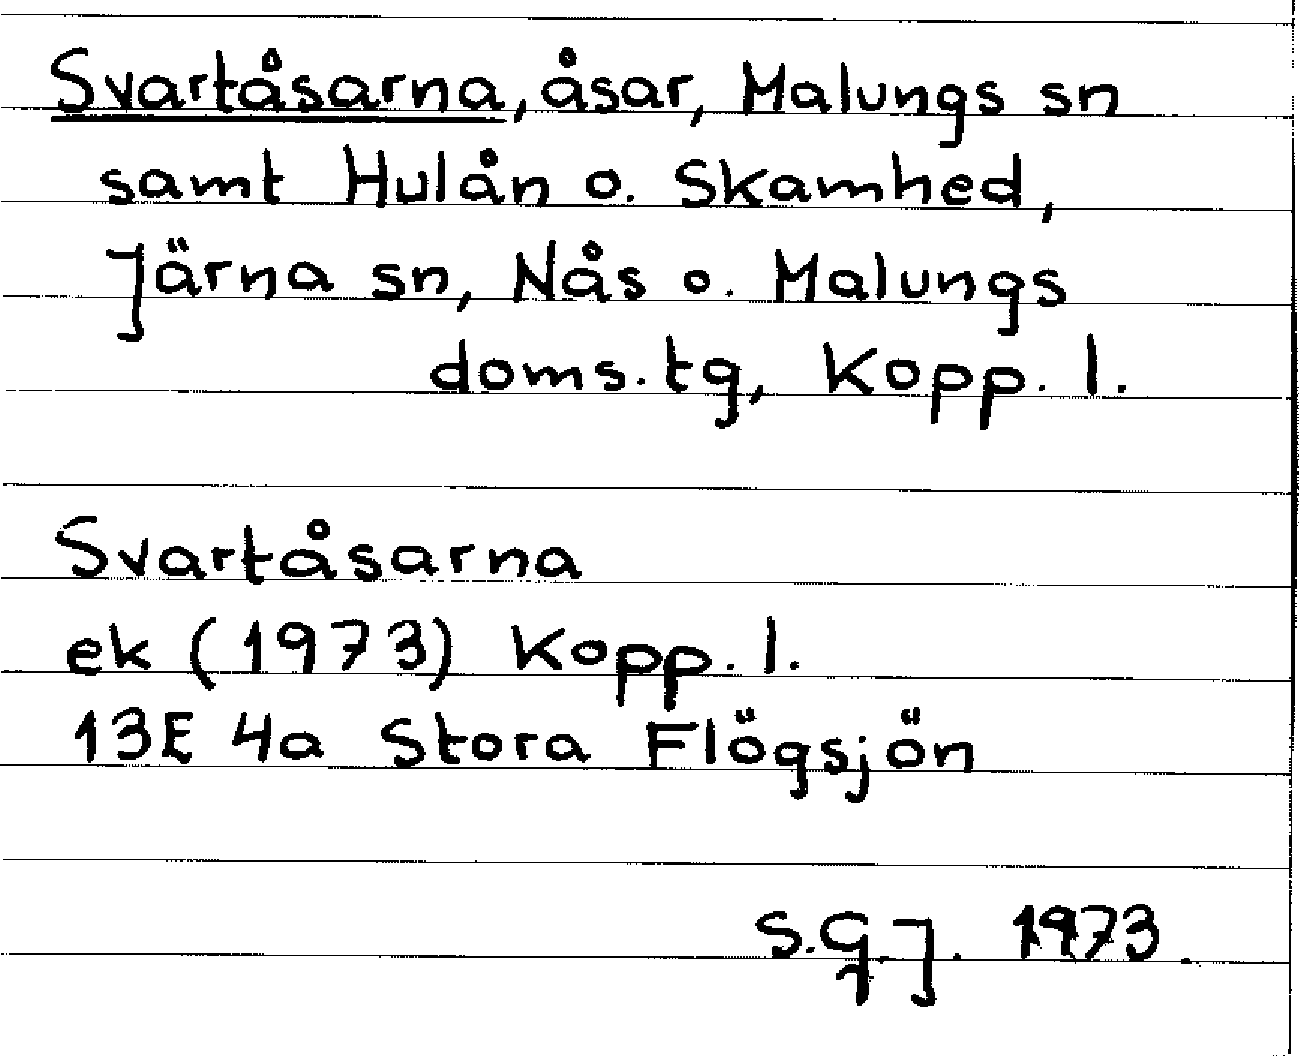 Svartåsarna, åsar, Malungs sn
samt Hulån o. Skamhed,
Järna sn, Nås o. Malungs
doms.tg, Kopp. l.
Svartåsarna
ek (1973) Kopp. l.
13E 4a Stora Flögsjön
S.G.J. 1973.